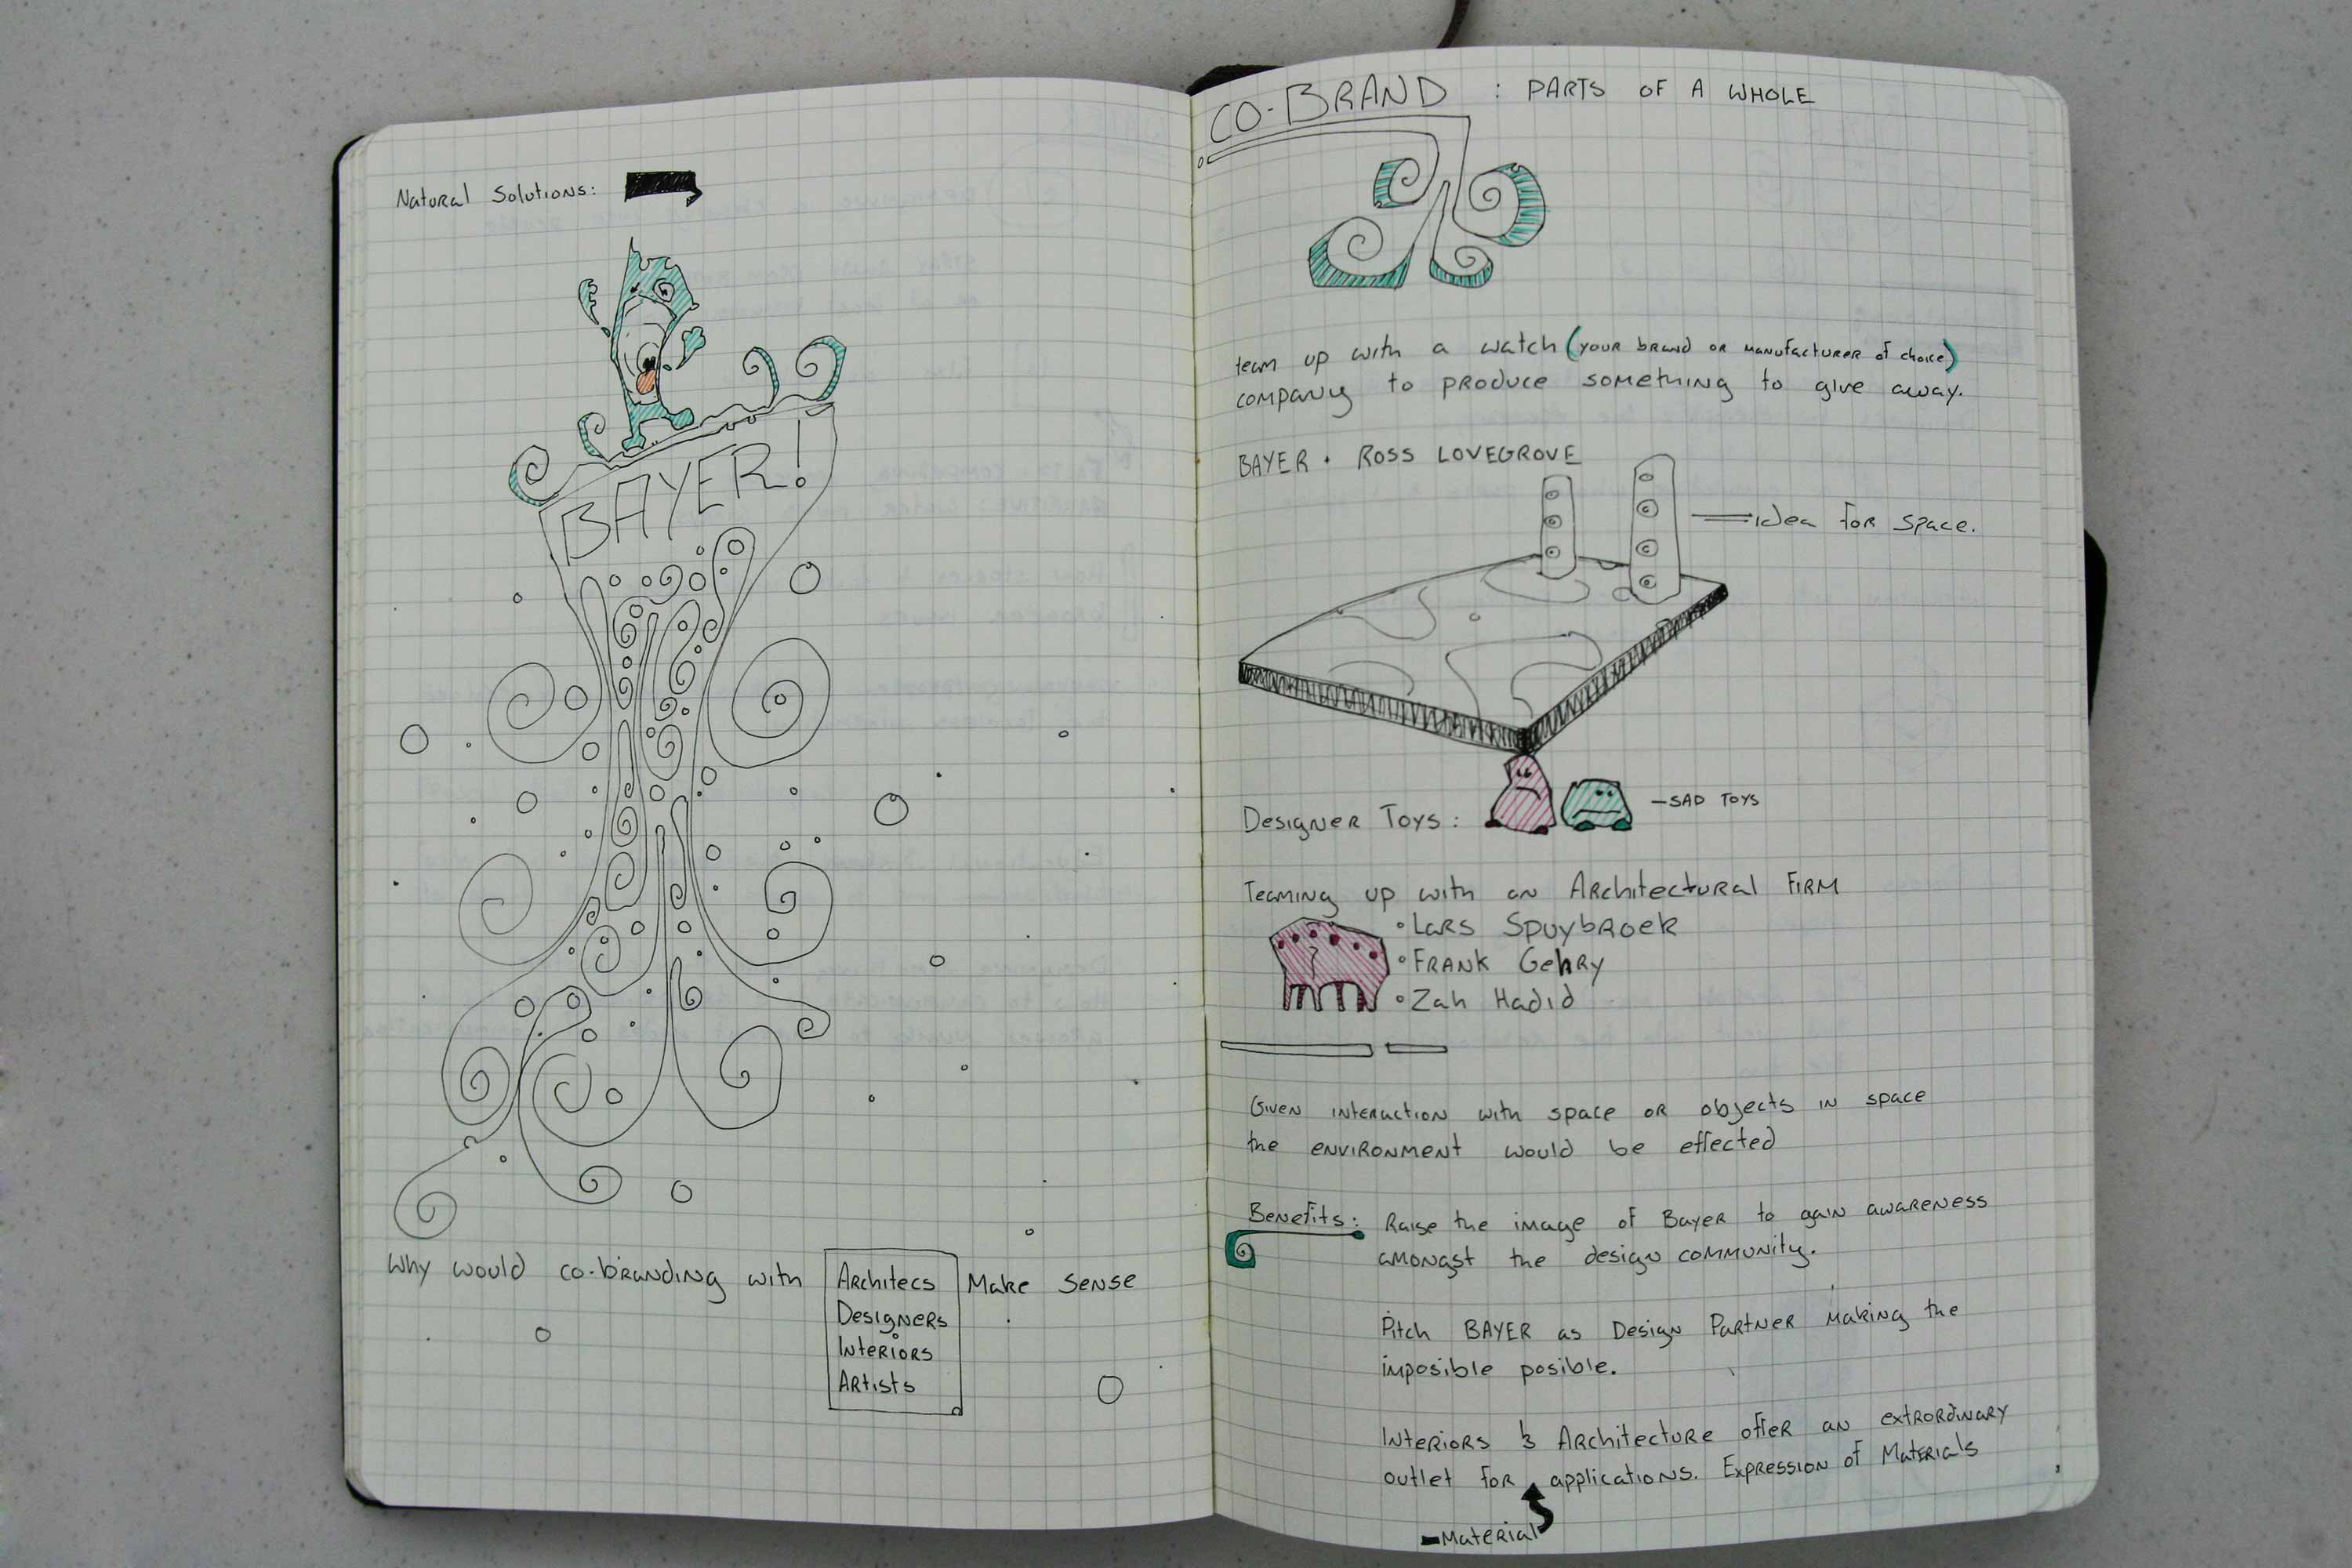 Natural Solutions:
BAYER!
Why would co-branding with Architecs Make Sense
Designers
Interiors
Artists
CO-BRAND : PARTS OF A WHOLE
team up with a watch (your brand or manufacturer of choice)
company to produce something to give away.
BAYER • ROSS LOVEGROVE
idea for space.
Designer Toys: - SAD TOYS
Teaming up with an Architectural Firm
• Lars Spuybroek
• Frank Gehry
• Zah Hadid
Given interaction with space or objects in space
the environment would be effected
Benefits: Raise the image of Bayer to gain awareness
amongst the design community.
Pitch BAYER as Design Partner making the
imposible posible.
Interiors & Architecture offer an extrordinary
outlet for applications. Expression of Materials
- Material